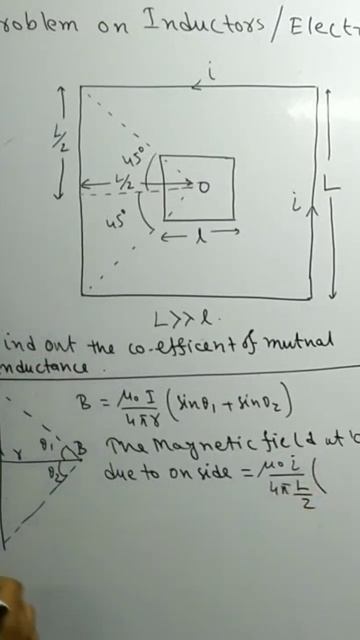 roblem on Inductors/Elect
i
L/2
45°
L/2
O
45°
l
i
L
L>>l.
ind out the co-efficent of mutual
nductance.
B = μ₀I/4πr (sinθ₁ + sinθ₂)
r θ₁ B
θ₂
The Magnetic field at 'o
due to on side = μ₀i/4π L/2 (